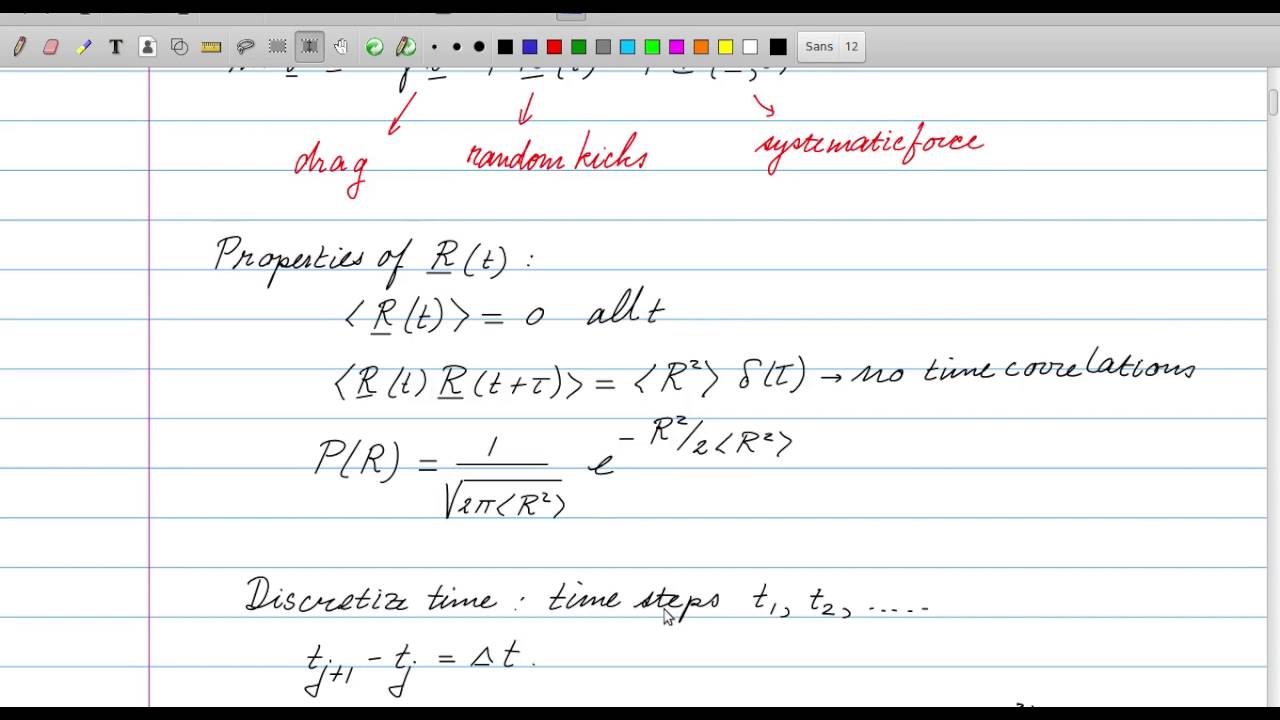 Sans 12
drag random kicks systematic force
Properties of R(t) :
⟨R(t)⟩ = 0 all t
⟨R(t) R(t+τ)⟩ = ⟨R²⟩ δ(τ) → no time correlations
P(R) = 1/√(2π⟨R²⟩) e^(-R²/2⟨R²⟩)
Discretize time : time steps t₁, t₂, .....
tⱼ₊₁ - tⱼ = Δt.